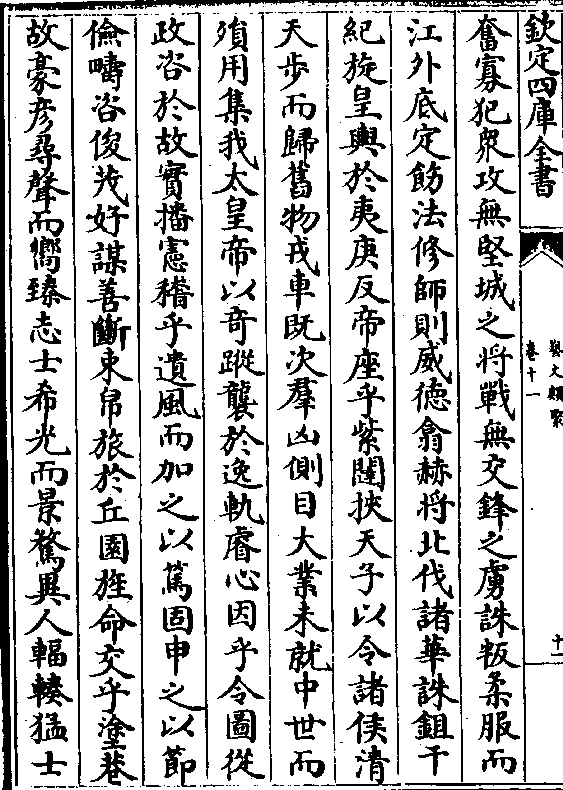 欽定四庫全書
藝文類聚
卷十一
十
奮寡犯衆攻無堅城之將戰無交鋒之虜誅叛柔服而
江外底定飭法修師則威德翕赫將北伐諸華誅鉏干
紀旋皇輿於夷庚反帝座乎紫闥挾天子以令諸侯清
天步而歸舊物戎車既次羣凶側目大業未就中世而
殞用集我太皇帝以奇蹤襲於逸軌睿心因乎令圖從
政咨於故實播憲稽乎遺風而加之以篤固申之以節
儉疇咨俊茂好謀善斷束帛旅於丘園旌命交乎塗巷
故豪彦尋聲而嚮臻志士希光而景騖異人輻輳猛士